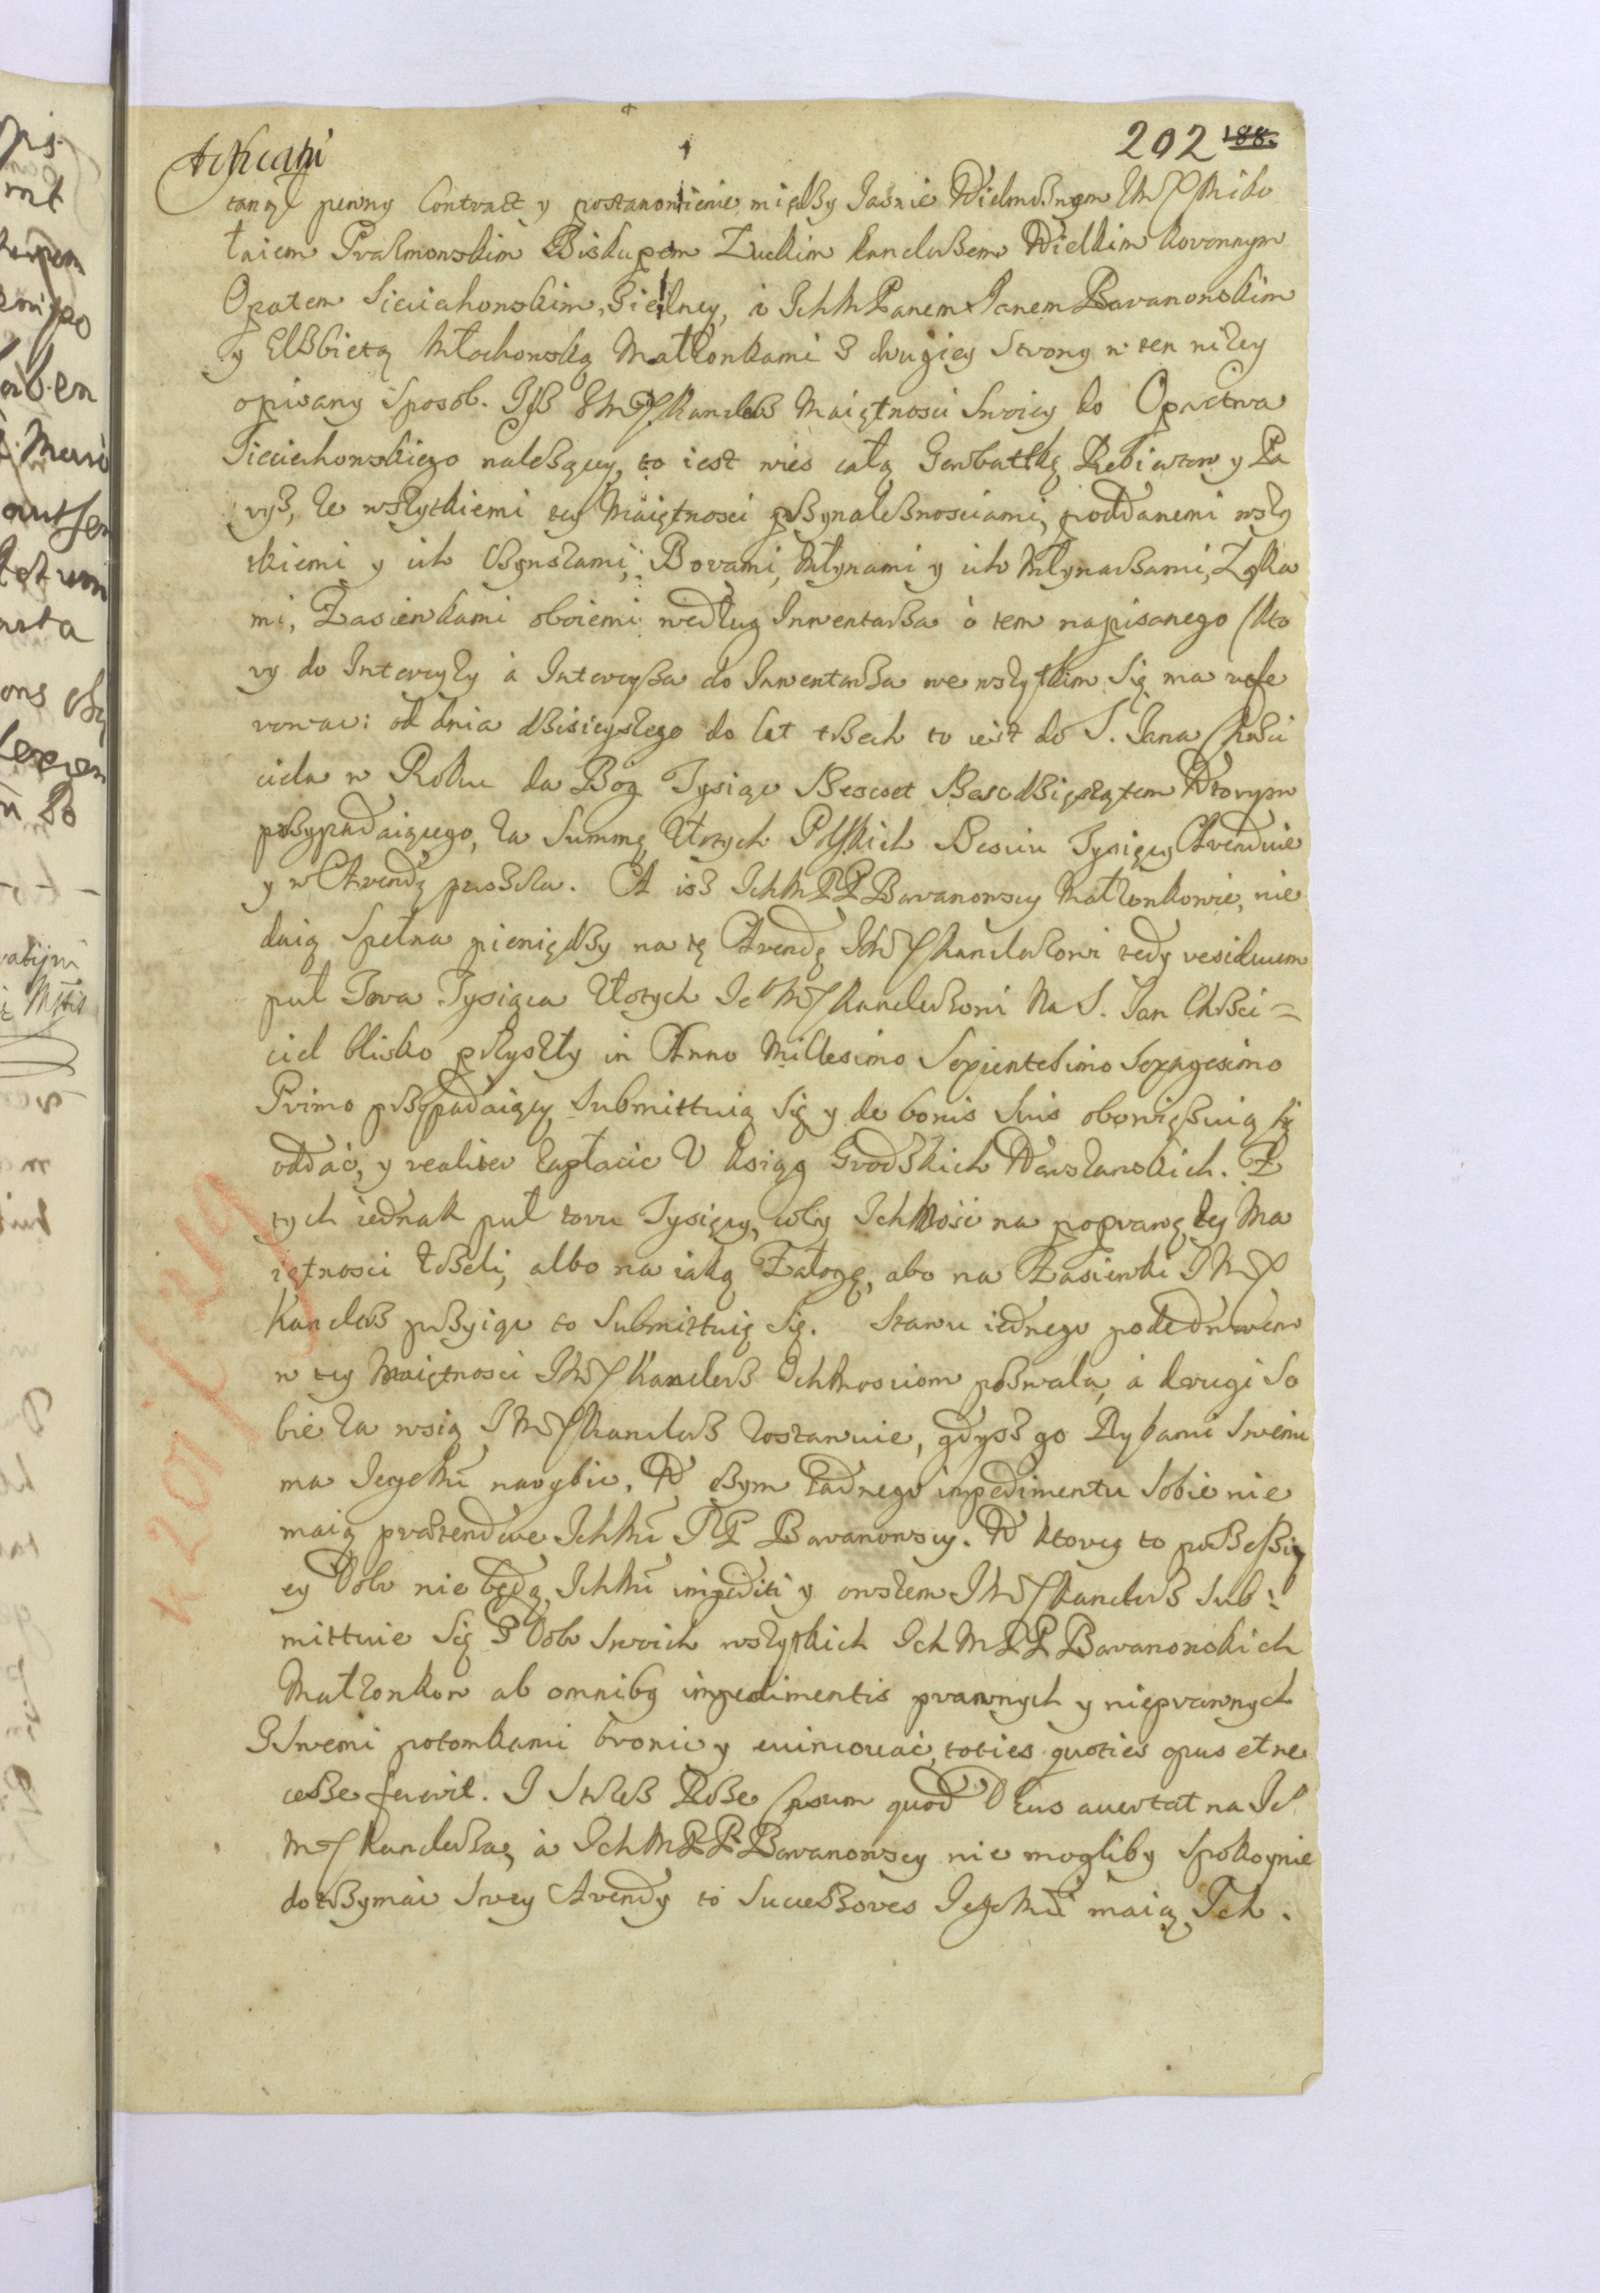 202 188.
stanął pewny Contract y postanowienie między Jaśnie Wielmożnym JMX Miko
łaiem Prażmowskim Biskupem Łuckim Kanclerzem Wielkim Koronnym
Opatem Sieciechowskim, z iednej, a IchM Panem Janem Baranowskim
y Elżbietą Młochowską Małżonkami z drugiey Strony w ten niżey
opisany Sposob. Isz JMX Kanclerz Maiętnosci Swoiey do Opactwa
Sieciechowskiego należącey, to iest wies całą Garbatkę
ze wszytkiemi tey Maiętnosci przynależnosciami, poddanemi wszy
tkiemi y ich czynszami, Borami, Młynami y ich Młynarzami, Łąka
mi, Zasiewkami oboiemi według Inwentarza o tem napisanego /kto
ry do Intercyzy a Intercyza do Inwentarza we wszytkim Się ma refe
rowac: od dnia dzisieyszego do lat trzech to iest do S. Jana Chrzci
ciela w Roku da Bog Tysiąc Szescset Szescdziesząten Wtorym
przypadaiącego, za Summę Złotych Polskich Szesciu Tysięcy Arenduie
y w Arendę puszcza. A isz IchMPP Baranowscy Małżonkowie, nie
daią Spełna pieniędzy na tę Arendę JMX Kanclerzowi tedy residuum
puł Tora Tysiąca Złotych JeoMX Kanclerzowi Na S. Jan Chrzci=
ciel blisko przyszły in Anno Millesimo Sexcentesimo Sexagesimo
Primo przypadaiący Submittuią Się y de bonis Suis obowięzuią się
oddać, y realiter zapłacic V Ksiąg Grodzkich Warszawskich. Z
tych iednak puł toru Tysięcy, coby IchMość na poprawę tey Ma
iętnosci łożeli, albo na iaką Załogę, abo na Zasiewki JMX
Kanclerz przyiąc to Submittuię Się. Stawu iednego
w tey Maiętnosci JMX Kanclerz IchMosciom pozwala, a drugi So
bie za wsią JMX Kanclerz zostawuie, gdysz go Rybami Swemi
ma JegoMć narybic. W czym żadnego impedimentu Sobie nie
maią praetendowac IchMć PP Baranowscy. W ktorey to possessiy
ey Dobr nie będą IchMć impediti y owszem JMX Kanclerz Sub:
mittuie Się z Dobr Swoich wszytkich IchMPP Baranowskich
Małżonkow ab omnibq impedimentis prawnych y nieprawnych
z Swemi potomkami bronic y euincować, toties quoties opus et ne
cesse fuerit. I Strzesz Boże casum quod Deus auertat na Je
MX Kanclerza, a IchMPP Baranowscy nie mogliby Spokoynie
dotrzymać Swey Arendy to Successores JegoMć maią Ich.
k 201 / 219